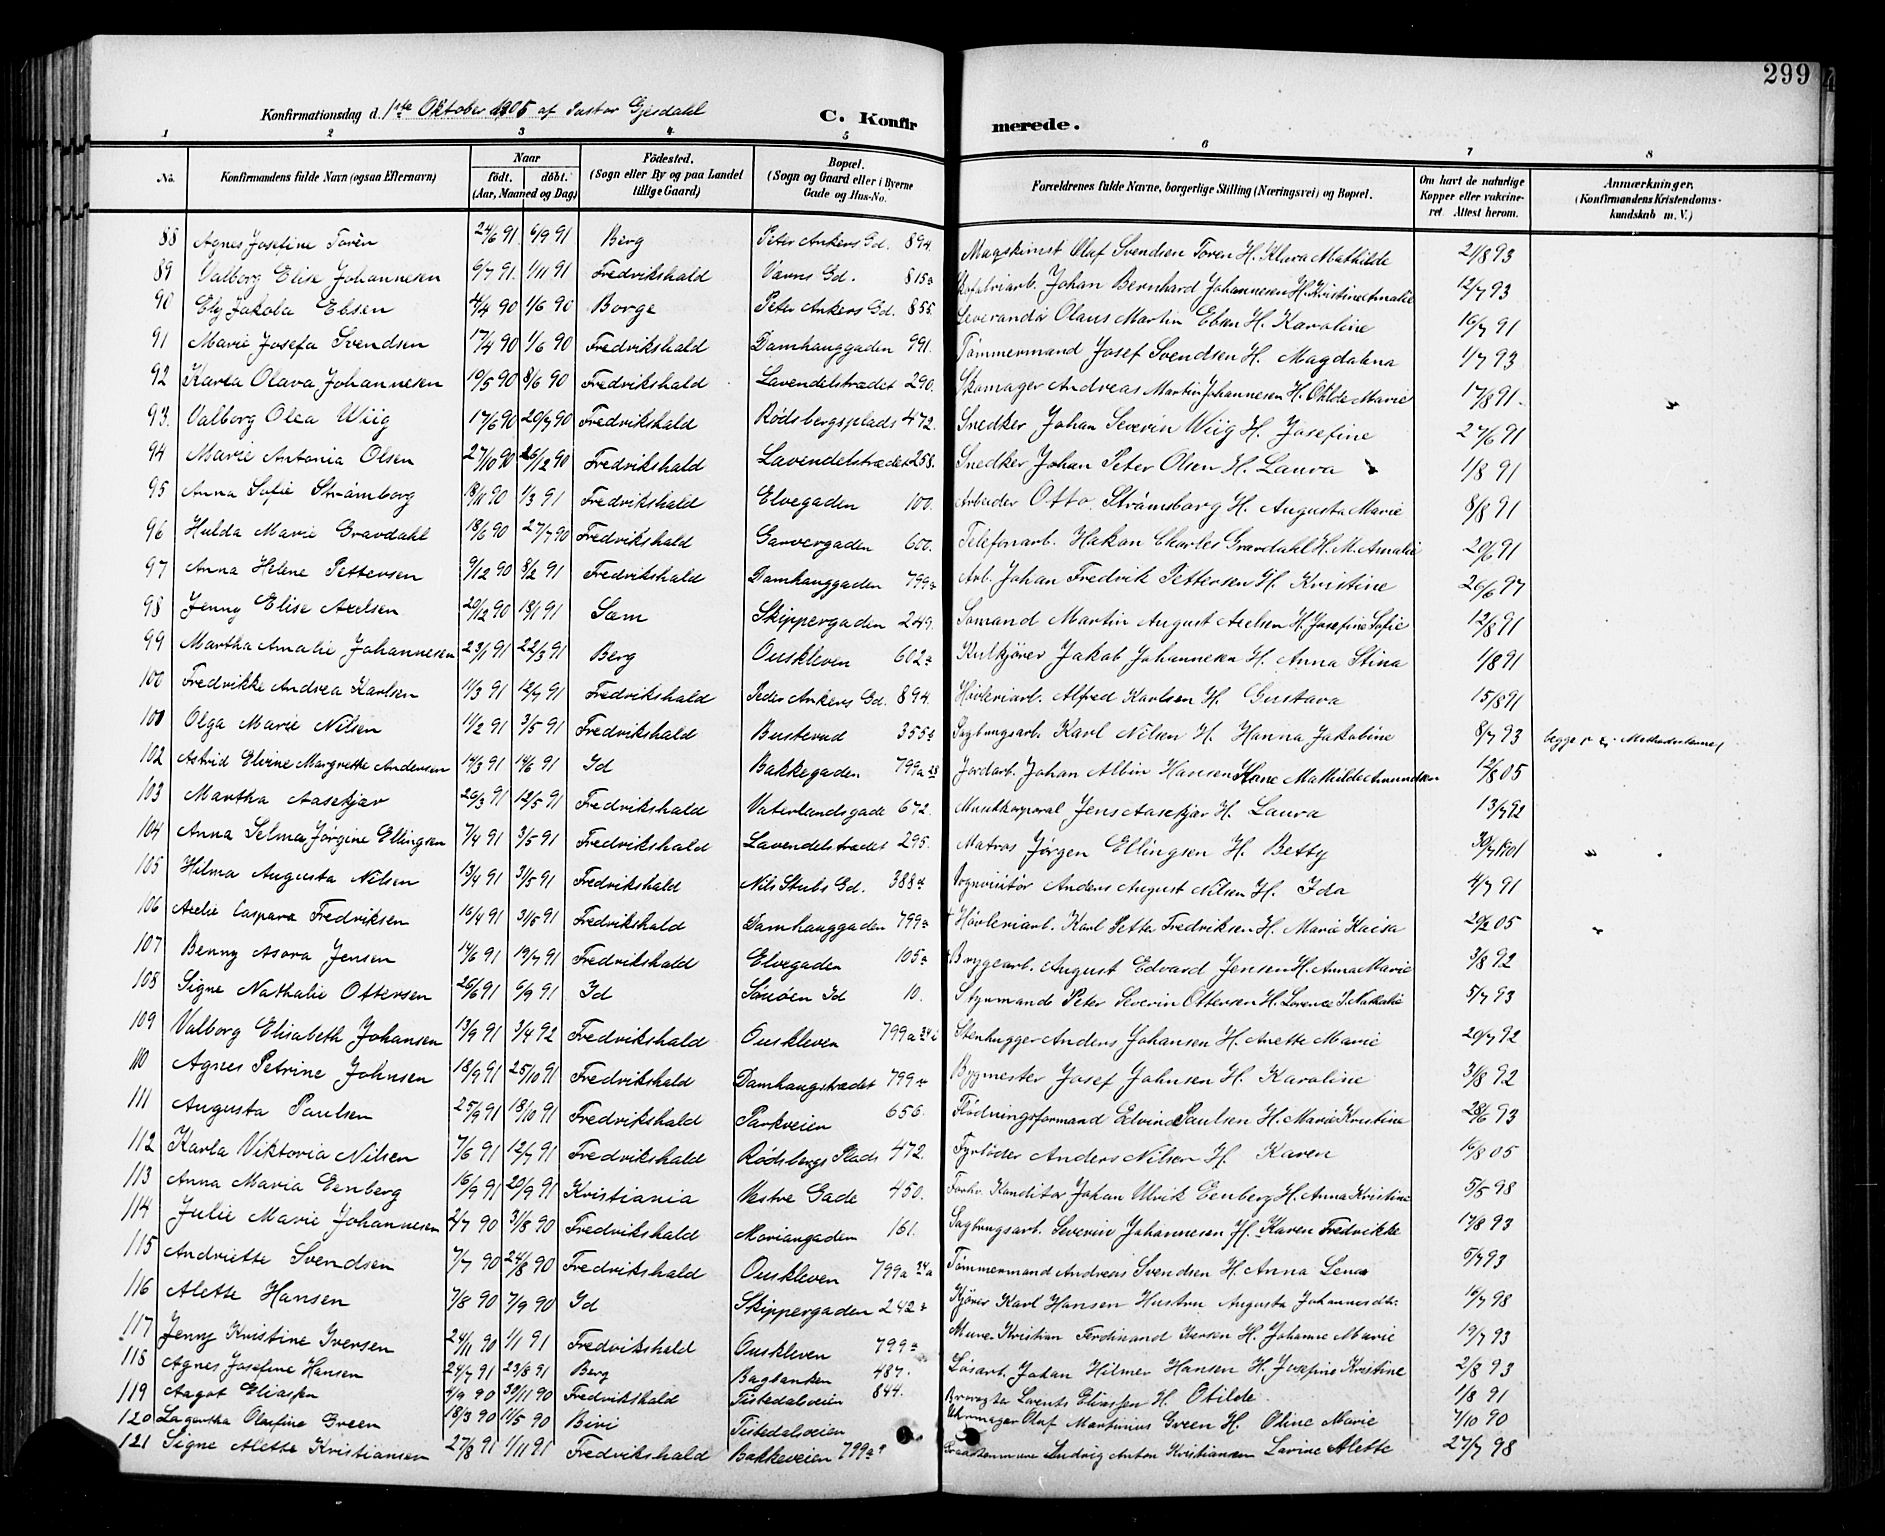 299
Konfirmationsdag d. 1ste Oktober 1905 af Pastor Gjesdahl
C. Konfirmerede.
1 2 3 4 5 6 7 8
No. Konfirmandens fulde Navn (ogsaa Efternavn) Naar födt. döbt. (Aar, Maaned og Dag) Födested. (Sogn eller By og paa Landet tillige Gaard) Bopæl. (Sogn og Gaard eller i Byerne Gade og Hus-No. Forældrenes fulde Navne, borgerlige Stilling (Næringsvei) og Bopæl. Om havt de naturlige Kopper eller vakcineret. Attest herom. Anmærkninger. (Konfirmandens Kristendomskundskab m. V.)
88 Agnes Josefine Torén 24/6 91 6/9 91 Berg Peter Ankers Gd. 894. Olaf Svendsen Toren H. Klara Mathilde 21/8 93
89 Valborg Elise Johannesen 9/7 91 1/11 91 Fredrikshald Vavns Gd. 815a Johan Bernhard Johannesen H. Kristine Amalie 12/7 93
90 Ely Jakola Ebsen 4/4 90 1/6 90 Borge Peter Ankers Gd. 855. Olaus Martin Ebsen H. Karoline 16/7 91
91 Marie Josefa Svendsen 17/4 90 1/6 90 Fredrikshald Damhauggaden 991. Tömmermand Josef Svendsen H. Magdalena 1/7 93
92 Karla Olava Johannesen 19/5 90 8/6 90 Fredrikshald Lavendelstrædet 290. Skomager Andreas Martin Johannesen H. Otilde Marie 17/8 91.
93. Valborg Olea Wiig 17/6 90 20/7 90 Fredrikshald Rødsbergsplads 472. Snedker Johan Severin Wiig H. Josefine 27/6 91
94 Marie Antonia Olsen 27/10 90 26/12 90 Fredrikshald Lavendelstrædet 258. Snedker Johan Peter Olsen H. Laura 1/8 91
95 Anna Sofie Strömborg 18/11 90 1/3 91 Fredrikshald Elvegaden 100. Arbeider Otto Strömsborg H. Augusta Marie 8/8 91
96 Hulda Marie Gravdahl 18/6 90 27/7 90 Fredrikshald Garvergaden 600. Telefonarb. Hakon Charles Gravdahl H. M. Amalie 20/6 91
97 Anna Helene Pettersen 9/12 90 8/2 91 Fredrikshald Damhauggaden 799a Arb. Johan Fredrik Pettersen H. Kristine 26/6 97
98 Jenny Elise Axelsen 20/12 90 18/1 91 Sam Skippergaden 249. Sömand Martin August Axelsen H. Josefine Sofie 12/8 91
99 Martha Amalie Johannesen 23/1 91 22/3 91 Berg Ouskleven 602a Kulkjörer Jakob Johannesen H. Anna Stina 1/8 91
100 Fredrikke Andrea Karlsen 11/3 91 12/7 91 Fredrikshald Peder Ankers Gd. 894. Høvleriarb. Alfred Karlsen H. Gustava 15/8 91
101 Olga Marie Nilsen 11/2 91 3/5 91 Fredrikshald Busterud 355a Sagbrugsarb. Karl Nilsen H. Hanna Jakobine 8/7 93 begge
102 Astrid Elvine Margrethe Andersen 14/3 91 14/6 91 Id Bakkegaden 799a 28 Jordarb. Johan Albin Hansen Kone Mathilde Amundsen 12/8 05
103 Martha Aasekjær 26/3 91 12/5 91 Fredrikshald Vaterlandsgade 672. Musikkorporal Jens Aasekjær H. Laura 13/7 92
104 Anna Selma Jørgine Ellingsen 7/4 91 3/5 91 Fredrikshald Lavendelstrædet 295. Matros Jørgen Ellingsen H. Betty 30/7 1901
105 Hilma Augusta Nilsen 13/4 91 31/5 91 Fredrikshald Nils Stubs Gd. 388a Vognvisitør Anders August Nilsen H. Ida 4/7 91
106 Axelie Caspara Fredriksen 16/4 91 31/5 91 Fredrikshald Damhauggaden 799a Høvleriarb. Karl Petter Fredriksen H. Marie Kaisa 20/2 05
107 Benny Asora Jensen 14/6 91 19/7 91 Fredrikshald Elvegaden 105a Bryggearb. August Edvard Jensen H. Anna Marie 3/8 92
108 Signe Nathalie Ottersen 26/6 91 6/9 91 Id Sauøen Id 10. Styrmand Peter Severin Ottersen H. Lorence J. Nathalie 5/7 93
109 Valborg Elisabeth Johansen 13/9 91 3/4 92 Fredrikshald Ouskleven 799a 34 Stenhugger Anders Johansen H. Anette Marie 20/7 92
110 Agnes Petrine Johnsen 18/9 91 25/10 91 Fredrikshald Damhaugstrædet 799a Bygmester Josef Johnsen H. Karoline 31/8 92
111 Augusta Paulsen 25/9 91 18/10 91 Fredrikshald Parkveien 656. Flödningsformand Edvind Paulsen H. Marie Kristine 28/6 93
112 Karla Viktoria Nilsen 7/6 91 12/7 91 Fredrikshald Rødsbergs Plads 472. Fyrbøder Anders Nilsen H. Karen 16/8 05
113 Anna Maria Eenberg 16/9 91 20/9 91 Kristiania Vestre Gade 450. Forhv. Konditor Johan Ulrik Eenberg H. Anna Kristine 5/5 98
114 Julie Marie Johannesen 2/7 90 31/8 90 Fredrikshald Moviangaden 161. Sagbrugsarb. Severin Johannesen H. Karen Fredrikke 17/8 93
115 Andriette Svendsen 7/7 90 24/8 90 Fredrikshald Ouskleven 799a 34a Tömmermand Andreas Svendsen H. Anna Lena 5/7 93
116 Alette Hansen 7/8 90 7/9 90 Id Skippergaden 242a Kjører Karl Hansen Hustru Augusta Johannesdtr. 14/7 98
117 Jenny Kristine Iversen 24/11 90 1/1 91 Fredrikshald Ouskleven 799a Murer Kristian Ferdinand Iversen H. Johanne Marie 19/7 93
118 Agnes Josefine Hansen 24/7 91 23/8 91 Berg Bagbanken 487. Løsarb. Johan Hilmer Hansen H. Josefine Kristine 2/8 93
119 Aagot Eliassen 4/9 90 30/11 90 Fredrikshald Tistedalveien 844. Lorents Eliassen H. Otilde 1/8 91
120 Lagertha Olaufine Green 18/3 90 11/5 90 Biri Tistedalveien Uhrmager Oluf Martinius Green H. Oline Marie 7/10 90
121 Signe Alette Kristiansen 27/8 91 1/11 91 Fredrikshald Bakkeveien 799a Ludvig Anton Kristiansen Lavine Alette 27/7 98